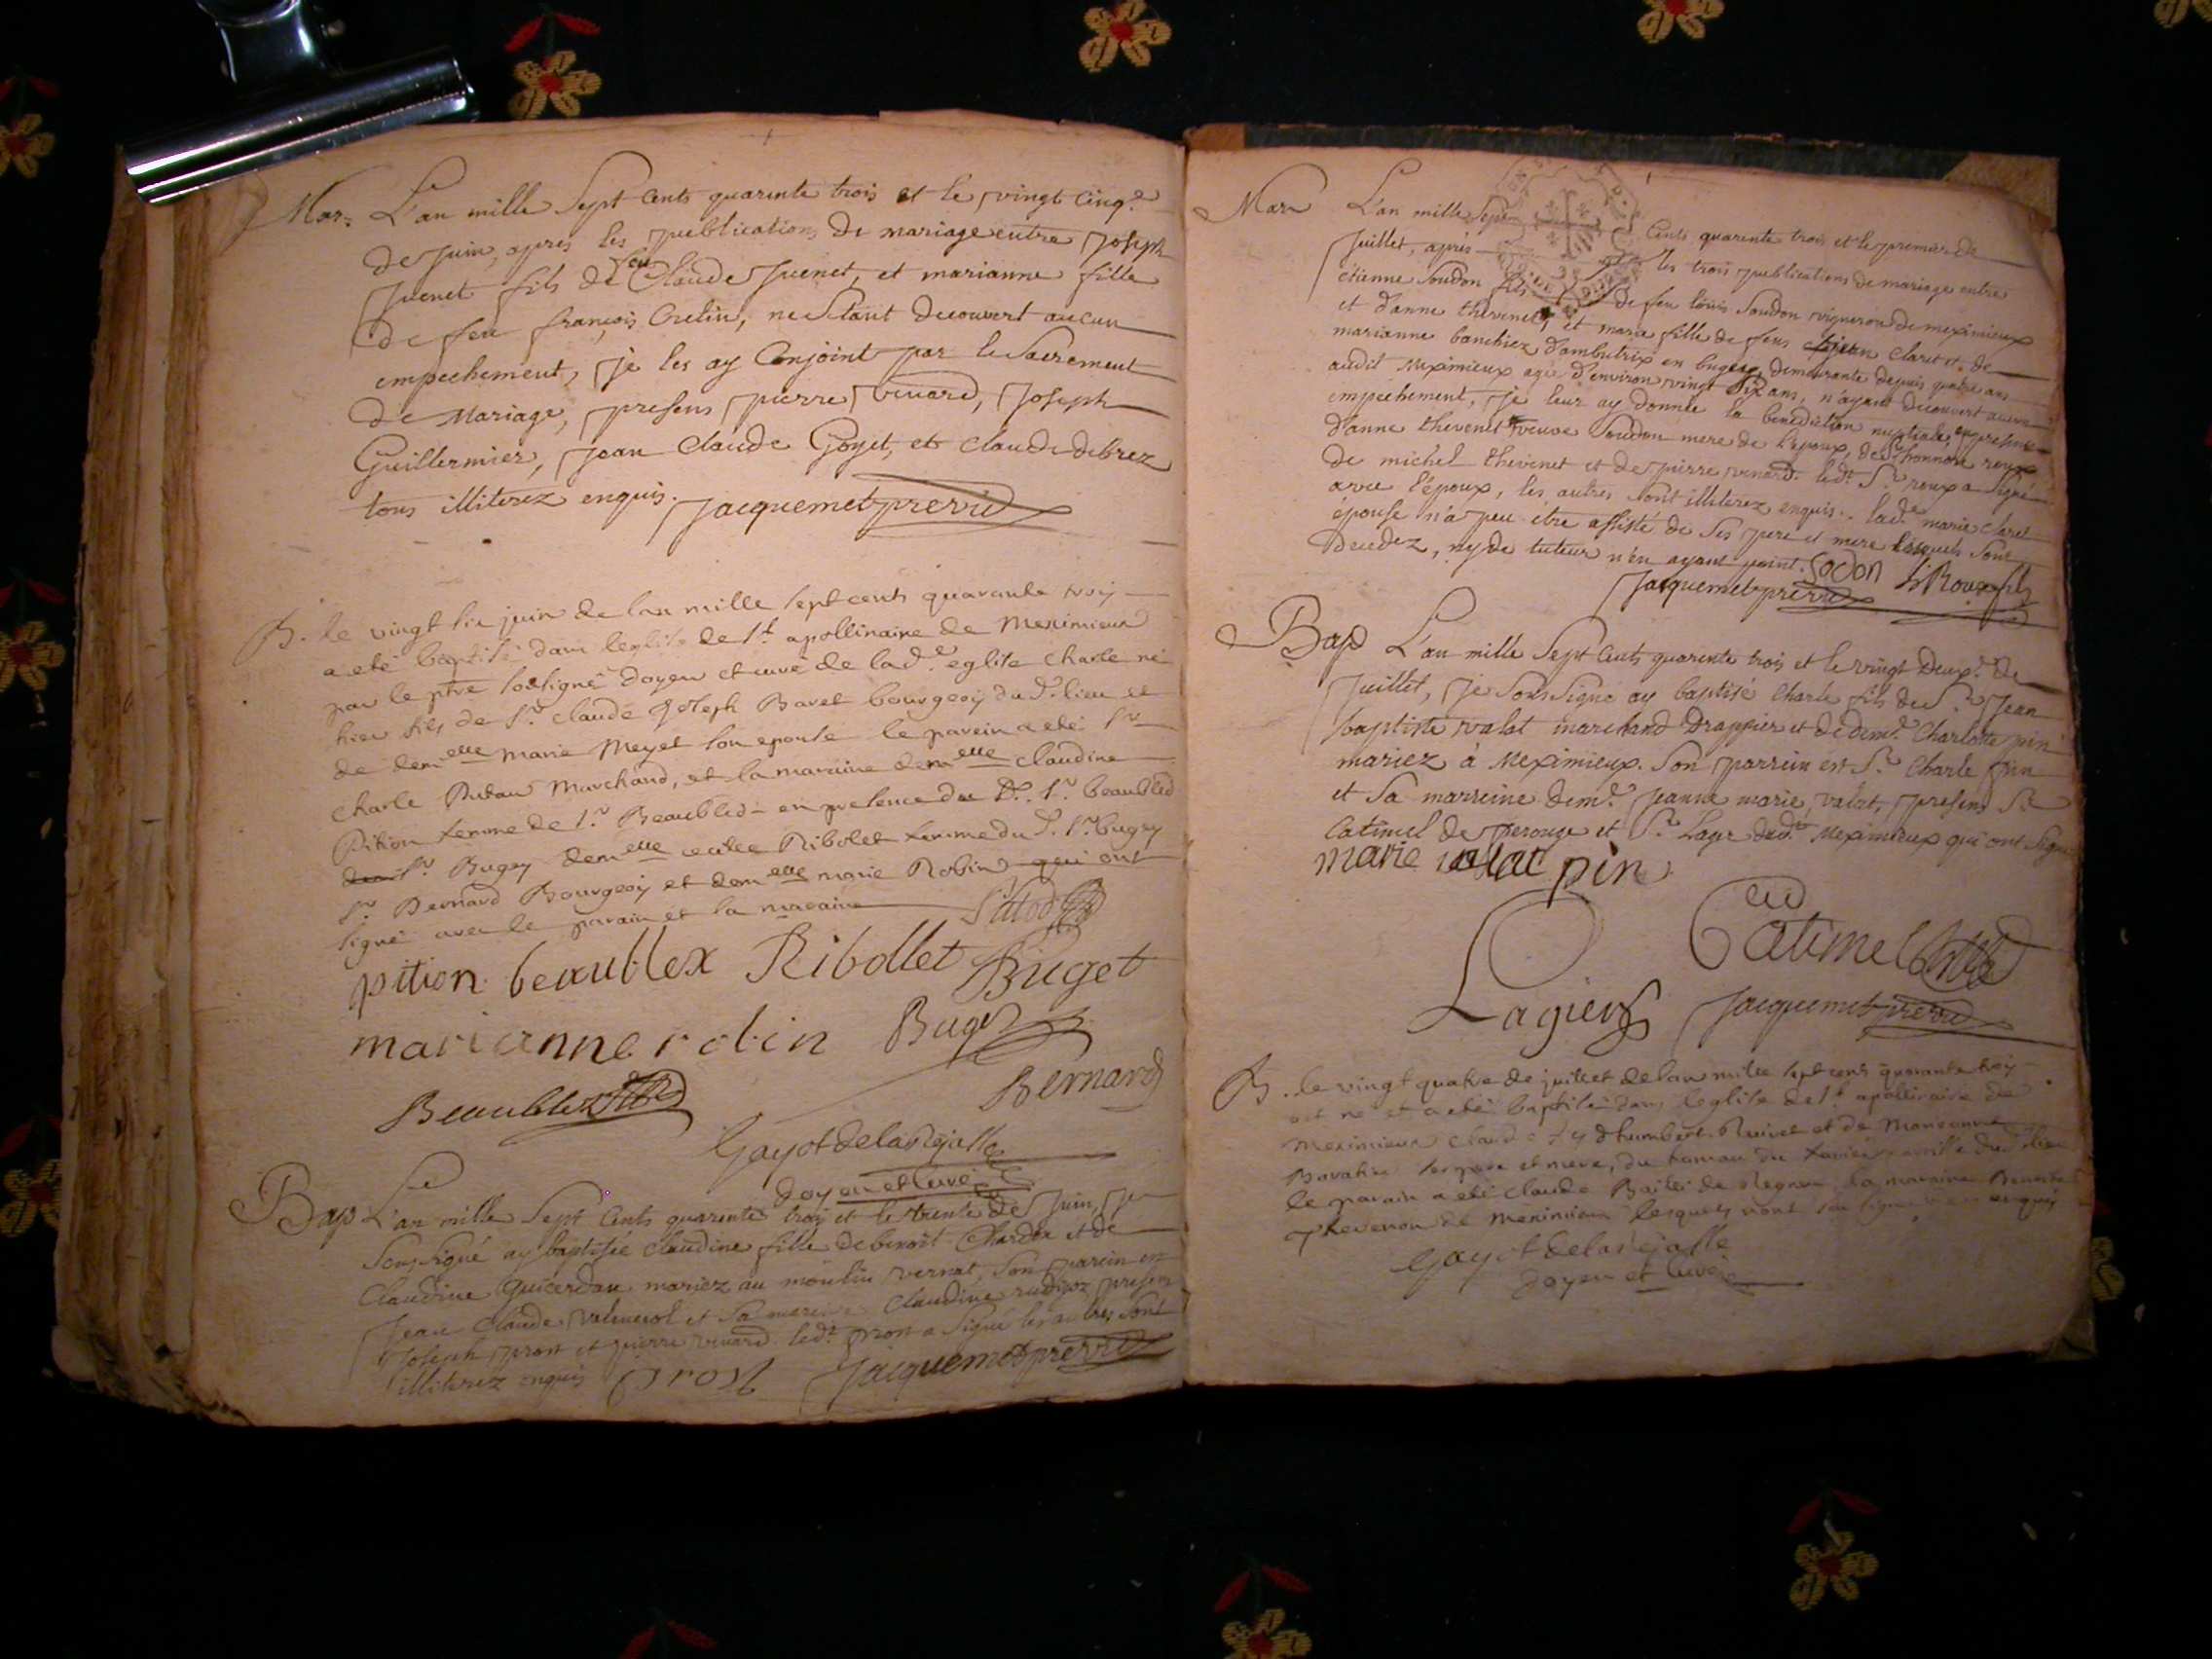 Mar: L'an mille Sept Cents quarente trois et le vingt cinq.e
de juin, apres les publications de mariage entre Joseph
Juenet fils de feu Claude Juenet, et marianne fille
de feu françois Cretin, ne s'étant decouvert aucun
empechement, je les ay Conjoint par le Sacrement
de Mariage, presens pierre vivard, Joseph
Guillermier, Jean Claude Goyet, et claude debrez
tous illiterez enquis. Jacquemet prevri
B. le vingt six juin de lan mille sept cents quarante trois
a eté baptisé dans leglise de St. apollinaire de Meximieux
par le ptre soussigné doyen et curé de lad.e eglise charle né
hier fils de Sr. claude joseph Bavet bourgeois du d. lieu et
de demelle marie Meyet son epouse le parein a eté Sr.
charle Marchand, et la maraine demelle claudine
Pition femme de Sr. Beaubled en presence du d. Sr. beaubled
Sr. Bugey demelle Ribolet femme du d. Sr. bugey
Sr. Bernard Bourgeois et demelle marie Robin qui ont
signé avec le parain et la maraine
pition beaublex Ribollet Buget
marianne robin Buget
Beaublez Bernard
Gayot de la Rejasse
doyen et curé
Bap L'an mille Sept Cents quarente trois et le trente de Juin, Je
Soussigné ay baptisée claudine fille de benoit Chardon et de
Claudine Guicerdan mariez au moulin vernat, Son parrein est
Jean Claude et Sa mareine Claudine presens
Joseph prost et pierre vivard. led.t prost a signé les autres sont
illiterez enquis Prost Jacquemet prevri
Mar L'an mille Sept Cents quarente trois et le premier de
Juillet, après les trois publications de mariage entre
étienne Soudon fils de feu loüis Soudon vigneron de meximieux
et d'anne thévenet, et marie fille de feus jean claret et de
marianne banchiez d'ambutrix en bugey, demeurante depuis quatre ans
audit Meximieux agée d'environ vingt Six ans, n'ayant decouvert aucun
empêchement, Je leur ay donnée la benediction nuptiale, en presence
d'anne thevenet veuve Soudon mere de l'epoux, de Sr. honnoré roux
de michel thevenet et de pierre vivard. led.t Sr. roux a Signé
avec l'époux, les autres sont illiterez enquis. lad.e marie claret
epouse n'a peu être assisté de Ses pere et mere lesquels Sont
decedez, ny de tuteur n'en ayant point. Sodon Roux fils
Jacquemet prevri
Bap L'an mille Sept Cents quarente trois et le vingt Deux.e de
Juillet, Je Sous Signé ay baptisé Charle fils du Sr. Jean
baptiste valat marchand Drappier et de dem.e Charlotte pin
mariez à Meximieux. Son parrein est Sr. Charle pin
et Sa marreine dem.e Jeanne marie valat, presens Sr.
Catimel de perouge et Sr. Lagier dud.t Meximieux qui ont Signé
marie valat pin
Catimel
Lagier Jacquemet prevri
B. le vingt quatre de juillet de lan mille sept cens quarante trois
est né et a eté baptisé dans leglise de St. apollinaire de
Meximieux claude d'humbert Ruivet et de Marianne
ses pere et mere, du hameau du
le parain a eté claude de la maraine
Thevenon de Meximieux lesquels nont sçu signer enquis
Gayot de la Rejasse
doyen et curé